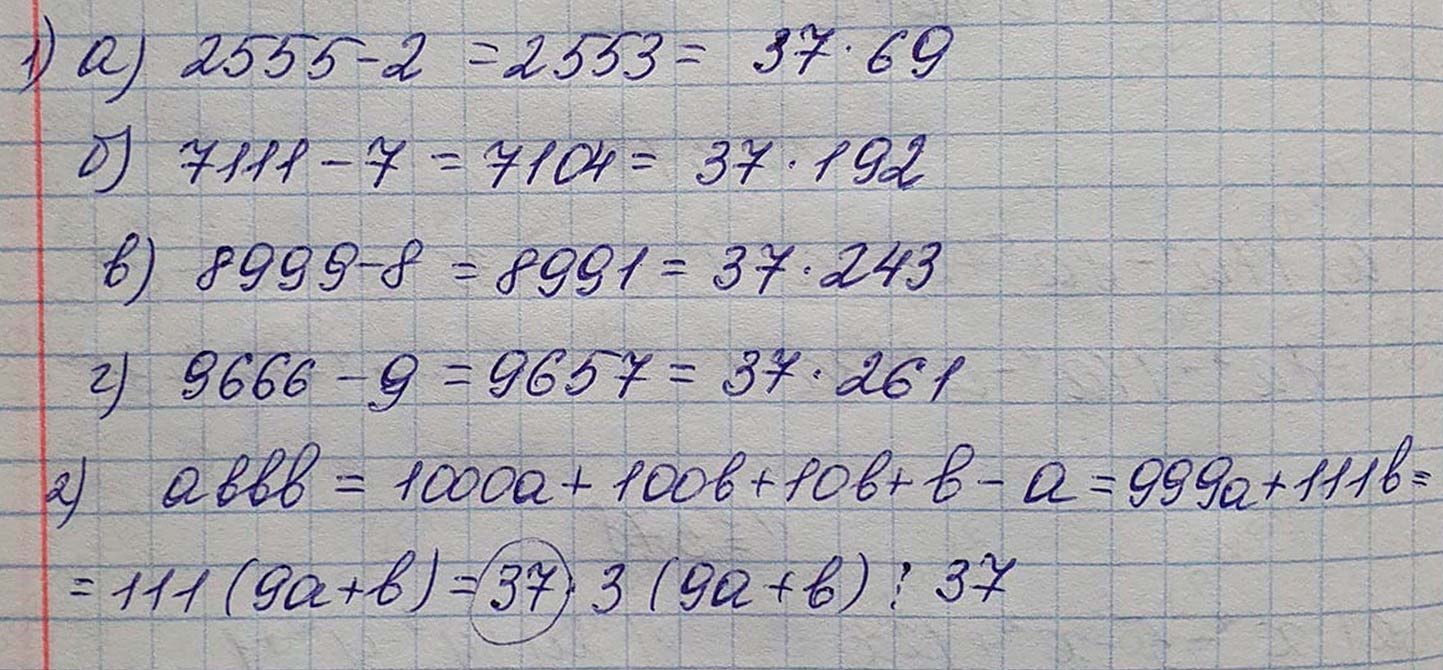 1) а) 2555-2 = 2553 = 37·69
б) 7111-7 = 7104 = 37·192
в) 8999-8 = 8991 = 37·243
г) 9666-9 = 9657 = 37·261
2) aввв = 1000a + 100в + 10в + в - a = 999a + 111в =
= 111 (9a + в) = 37·3 (9a + в) ⋮ 37